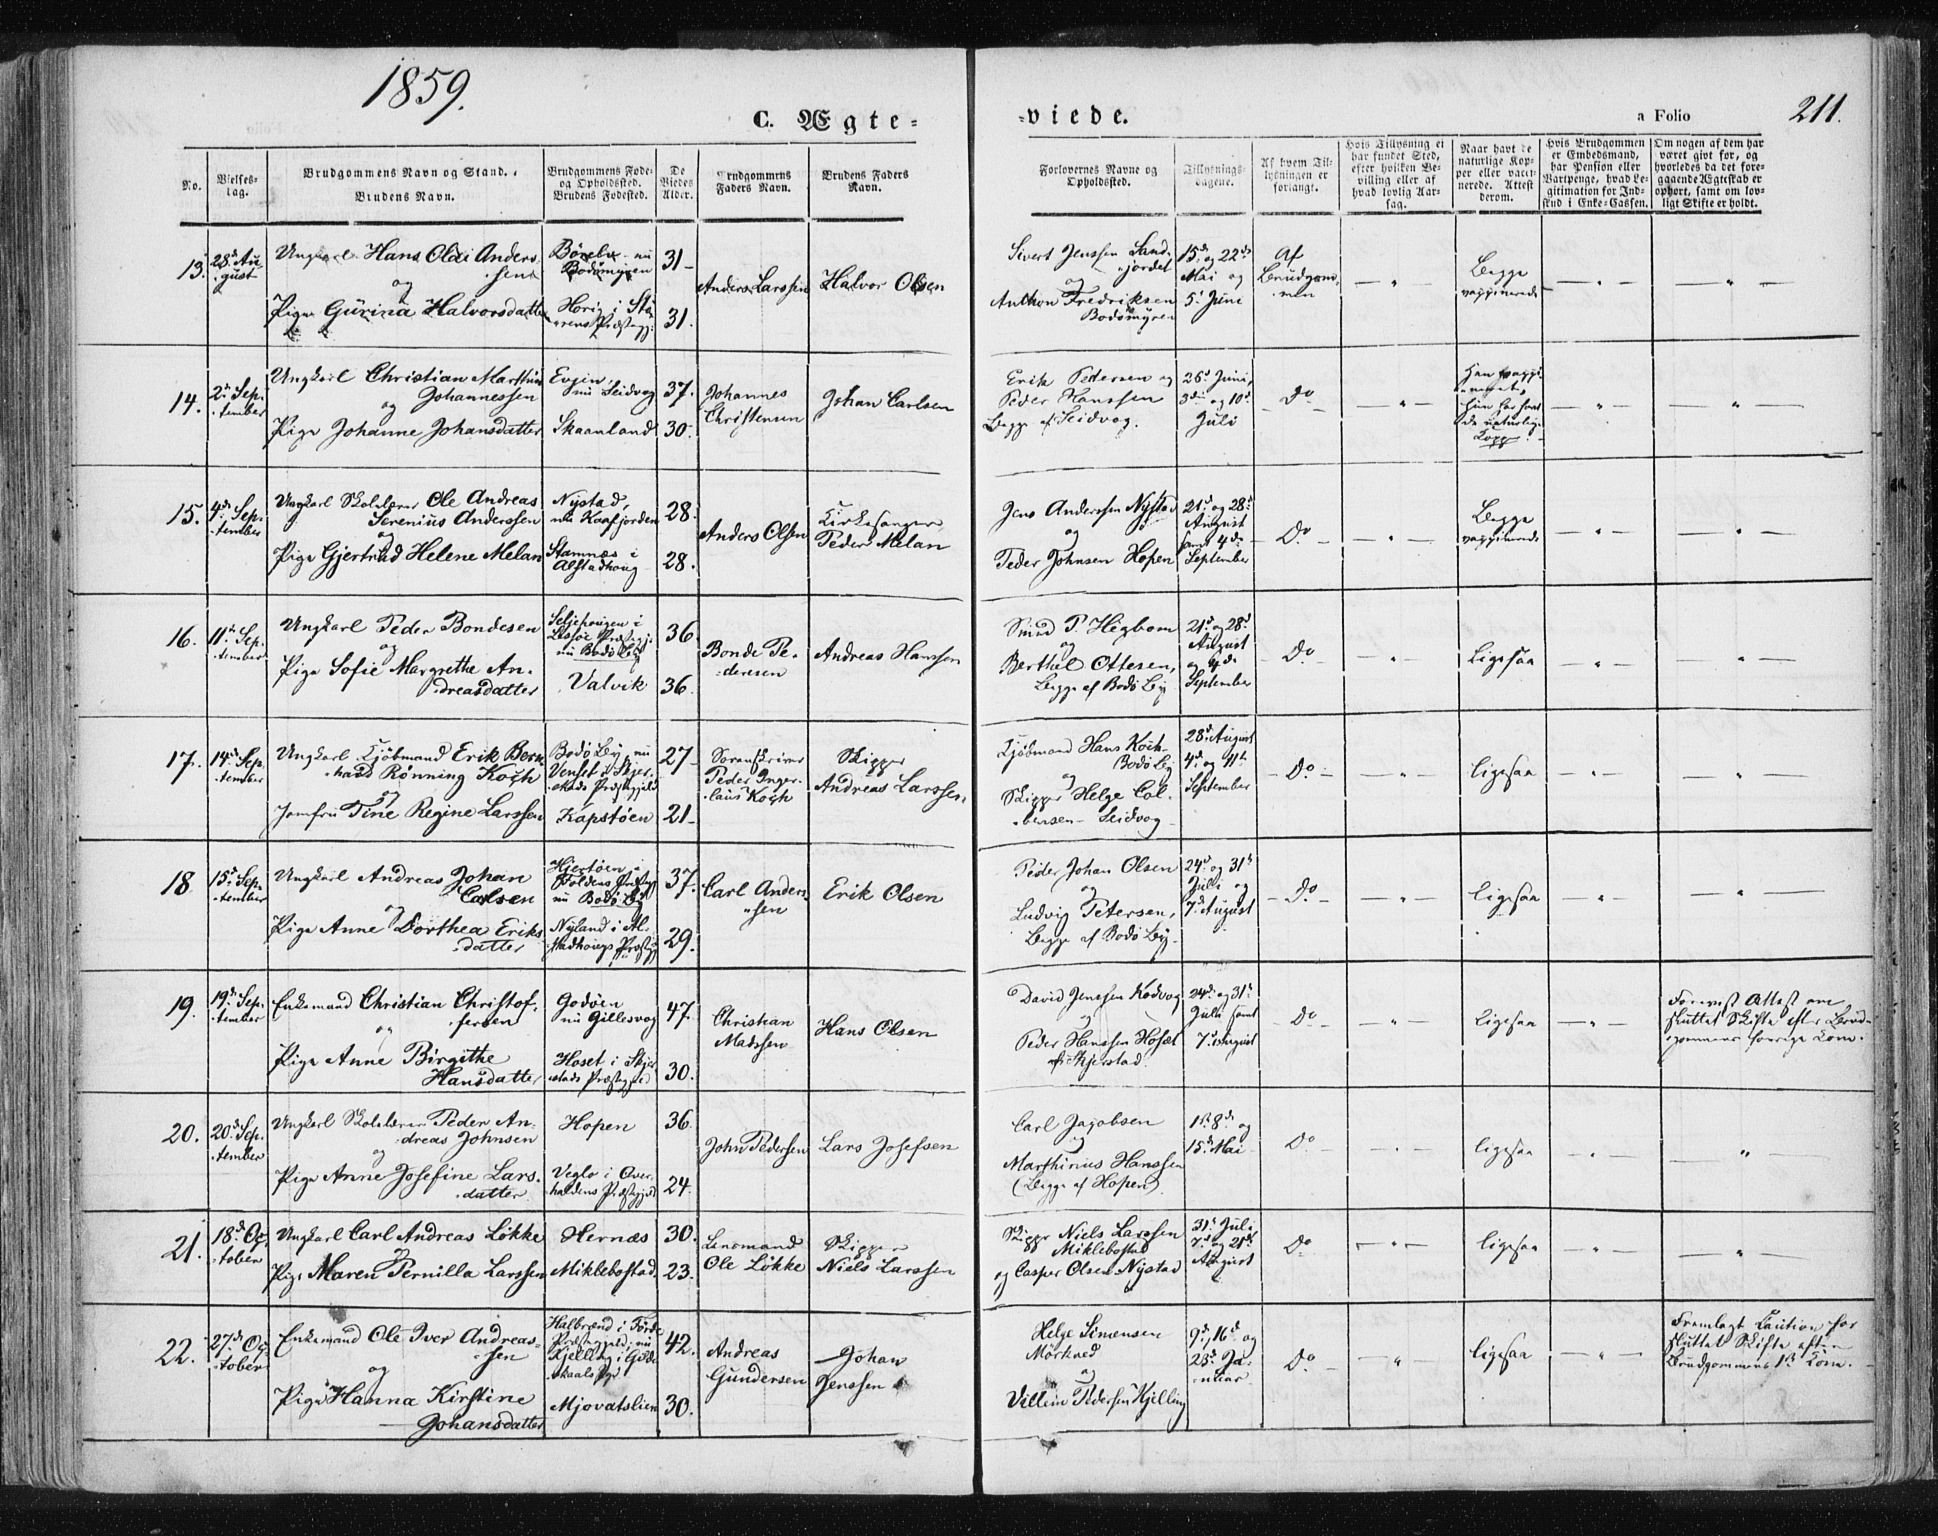 1859.
C. Ægte=
=viede.
a Folio
211.
No.
Vielses-
dag.
Brudgommens Navn og Stand.
Brudens Navn.
Brudgommens Føde-
og Opholdssted.
Brudens Fødested.
De
Viedes
Alder.
Brudgommens
Faders Navn.
Brudens Faders
Navn.
Forlovernes Navne og
Opholdssted.
Tillysnings-
dagene.
Af hvem Til-
lysningen er
forlangt.
Hvis Tillysning ei
har fundet Sted,
efter hvilken Be-
villing eller af
hvad lovlig Aar-
sag.
Naar havt de
naturlige Kop-
per eller vacci-
nerede. Attest
derom.
Hvis Brudgommen
er Embedsmand,
har Pension eller
Vartpenge, hvad Le-
gitimation for Ind-
skud i Enke-Cassen.
Om nogen af dem har
været givt før, og
hvorledes da det fore-
gaaende Ægteskab er
ophørt, samt om lov-
ligt Skifte er holdt.
13.
28de Au-
gust
Ungkarl Hans Olai Anders-
sen
og
Pige Gurina Halvorsdatter
nu
Bodømyren
Præstegj:
31
31.
Anders Larssen
Halvor Olsen
Sivert Jenssen Sand-
jordet
og
Anthon Fredriksen
Bodømyren
15de og 22de
Mai og
5te Juni
Af
Brudgom-
men
Begge
vaccinerede
14.
2den Sep-
tember
Ungkarl Christian Marthin
Johannessen
og
Pige Johanne Johansdatter
Evjen,
nu Seidvog
Skaanland
37.
30.
Johannes
Christensen
Johan Carlsen
Erik Pedersen og
Peder Hanssen
Begge af Seidvog.
26de Juni,
3die og 10de
Juli
Do
Han vacci-
neret,
hun har havt
de naturlige
Kopper.
15.
4de Sep-
tember
Ungkarl Skolelærer Ole Andreas
Serenius Anderssen
og
Pige Gjertrud Helene Melan
Nystad,
nu Kaafjorden
Stamnæs i
Alstadhoug
28.
28.
Anders Olsen
Kirkesanger
Peder Melan
Jens Andersen Nystad
og
Peder Johnsen Hopen
21de og 28de
August
samt 4de
September
Do
Begge
vaccinerede
16.
11te Sep-
tember
Ungkarl Peder Bondesen
og
Pige Sofie Margrethe An-
dreasdatter
Præstegj:
nu Bodø By
Valvik
36
36.
Bonde Pe-
dersen
Andreas Hanssen
P. Higbom
og
Berthel Ottesen,
Begge af Bodø By
21de og 28de
August
og 4de
September
Do
Ligesaa
17.
14de Sep-
tember
Ungkarl Kjøbmand Erik Bern-
hard Rønning Koch
og
Jomfru Tine Regine Larssen
Bodø By, nu
Venset i Skjer-
stads Præstegjeld
Kapstøen
27
21
Sorenskriver
Peder Inger-
laus Koch
Skipper
Andreas Larssen.
Kjøbmand Hans Koch
Bodø By
og
Skipper Helge Col-
bensen Seidvog
28de August
4de og 11te
September
Do
Ligesaa
18
15de Sep-
tember
Ungkarl Andreas Johan
Carlsen
og
Pige Anne Dorthea Eriks-
datter
Hjertøen i
Foldens Præstegj
nu Bodø By
Nyland i Al-
stadhougs Præstegj
37.
29.
Carl Ander-
sen
Erik Olsen
Peder Johan Olsen
og
Ludvig Petersen,
Begge af Bodø By
24de og 31te
Juli og
7de August
Do
Ligesaa
19.
19de Sep-
tember
Enkemand Christian Christof-
fersen
og
Pige Anne Birgithe
Hansdatter
Godøen
nu Gillesvog
Hoset i Skjer-
stads Præstegjeld
47.
30.
Christian
Madssen
Hans Olsen
David Jenssen Kodvog
og
Peder Hanssen Hoset
af Skjerstad.
24de og 31te
Juli samt
7de August
Do
Ligesaa
Forevist Attest om
sluttet Skifte efter Brud-
gommens forrige Kone.
20.
20de Sep-
tember
Ungkarl Skolelærer Peder An-
dreas Johnsen
og
Pige Anne Josefine Lars-
datter
Hopen
Veglo i Over-
haldens Præstegjeld
36
24.
John Pedersen
Lars Josefsen
Carl Jacobsen
og
Marthinus Hanssen
(Begge af Hopen)
1ste 8de og
15de Mai
Do
Ligesaa
21.
18de Oc-
tober
Ungkarl Carl Andreas Løkke
og
Pige Maren Pernilla Larssen
Hernæs
Miklebostad
30.
23.
Lensmand
Ole Løkke
Skipper
Niels Larssen
Skipper Niels Larssen
Miklebostad
og Casper Olsen Nystad
31te Juli
7de og 21de
August
Do
Ligesaa
22.
27de Oc-
tober
Enkemand Ole Iver Andreas-
sen
og
Pige Hanna Kirstine
Johansdatter
Halbrænd i Førde
Præstegjeld, nu
Mjovatslien
42.
30.
Andreas
Gundersen
Johan
Jenssen
Helge Simensen
Mørkved
og
Villem Pedersen Kjelling
9de, 16de og
23de Ja-
nuar
Do
Ligesaa
Fremlagt Caution for
sluttet Skifte efter
Brudgommens 1ste Kone.